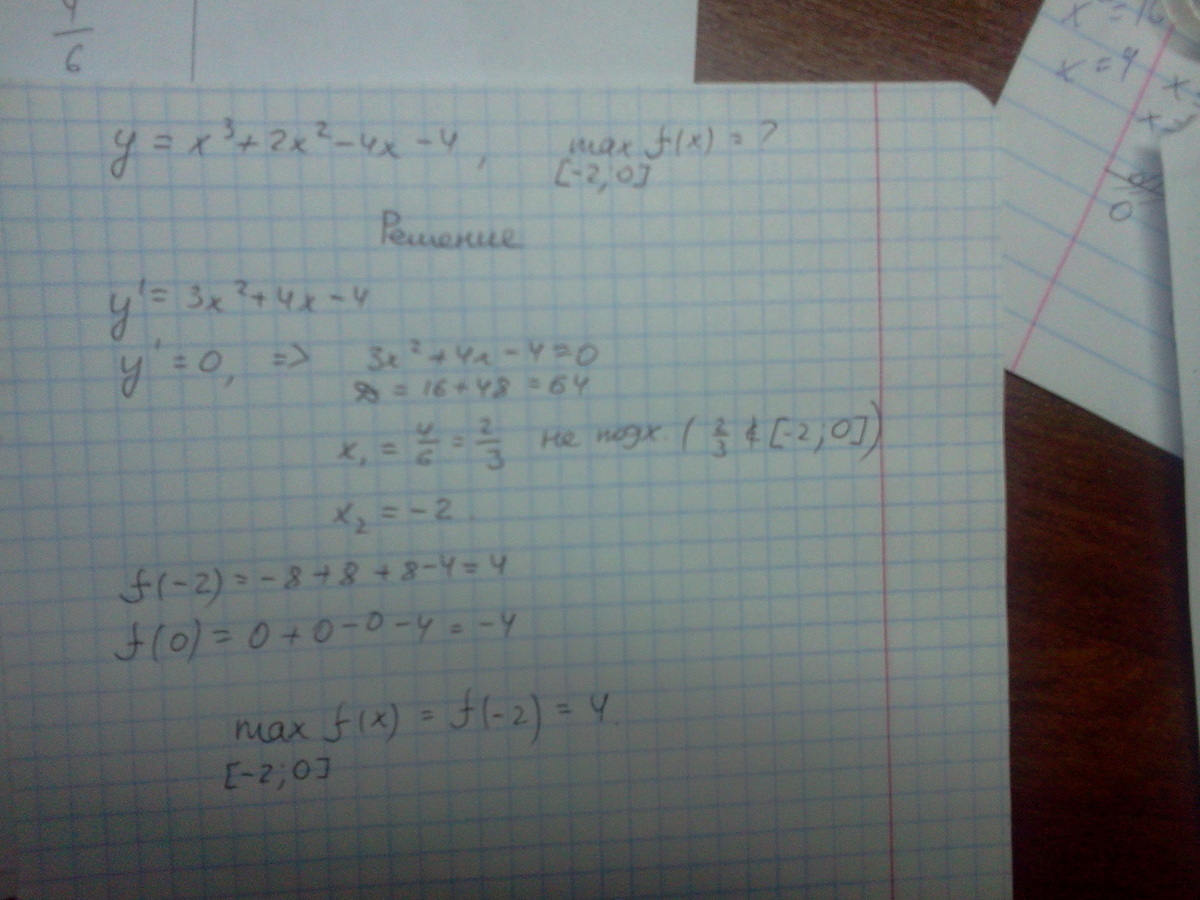 4/6
x² = 16
x = 4
y = x³ + 2x² - 4x - 4, max f(x) = ?
[-2; 0]
Решение
y' = 3x² + 4x - 4
y' = 0, => 3x² + 4x - 4 = 0
D = 16 + 48 = 64
x₁ = 4/6 = 2/3 не подх. (2/3 ∉ [-2; 0])
x₂ = -2
f(-2) = -8 + 8 + 8 - 4 = 4
f(0) = 0 + 0 - 0 - 4 = -4
max f(x) = f(-2) = 4.
[-2; 0]